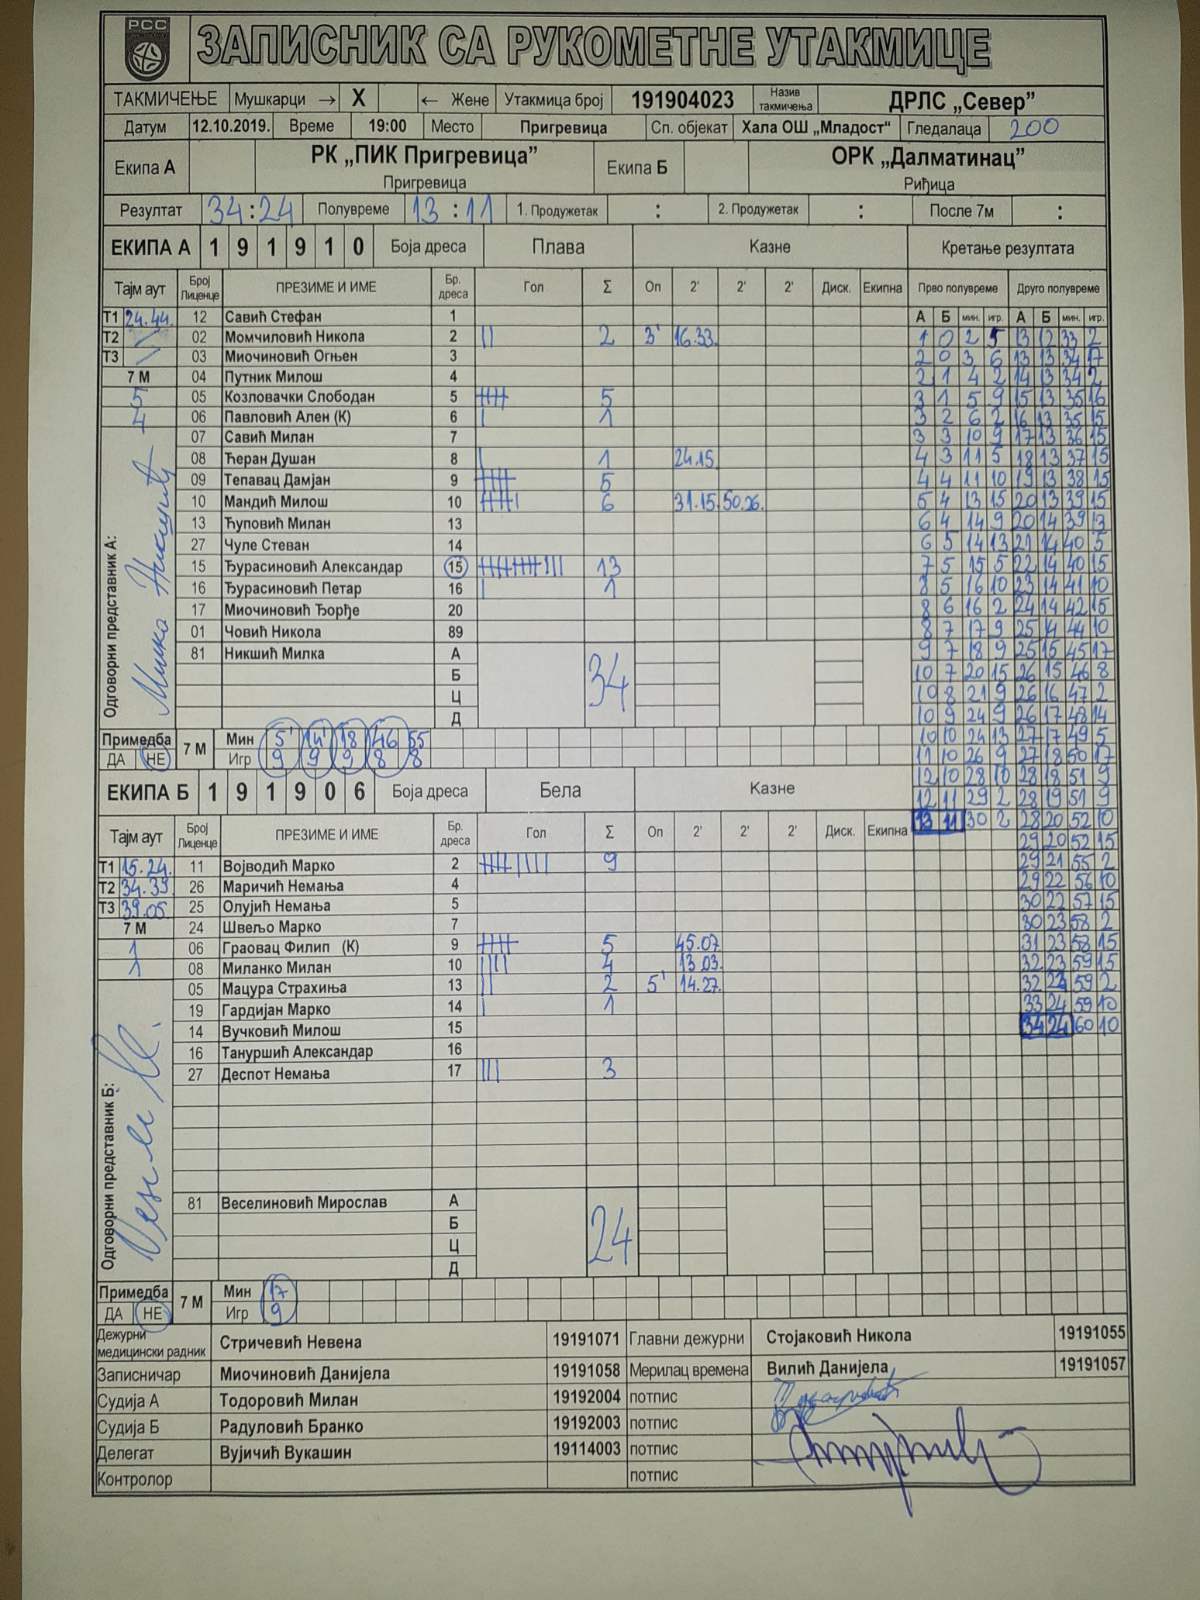 РСС
ЗАПИСНИК СА РУКОМЕТНЕ УТАКМИЦЕ
ТАКМИЧЕЊЕ Мушкарци → X ← Жене Утакмица број 191904023 Назив такмичења ДРЛС „Север”
Датум 12.10.2019. Време 19:00 Место Пригревица Сп. објекат Хала ОШ „Младост“ Гледалаца 200
Екипа А РК „ПИК Пригревица” Екипа Б ОРК „Далматинац”
Пригревица Риђица
Резултат 34:24 Полувреме 13:11 1. Продужетак : 2. Продужетак : После 7м :
ЕКИПА А 1 9 1 9 1 0 Боја дреса Плава Казне Кретање резултата
Тајм аут Број Лиценце ПРЕЗИМЕ И ИМЕ Бр. дреса Гол Σ Оп 2' 2' 2' Диск. Екипна Прво полувреме Друго полувреме
А Б мин. игр. А Б мин. игр.
Т1 24.44. 12 Савић Стефан 1
Т2 02 Момчиловић Никола 2 || 2 3' 16.33.
Т3 03 Миочиновић Огњен 3
7 М 04 Путник Милош 4
5 05 Козловачки Слободан 5 5
4 06 Павловић Ален (К) 6 | 1
07 Савић Милан 7
08 Ћеран Душан 8 | 1 24.15.
09 Тепавац Дамјан 9 5
10 Мандић Милош 10 6 31.15. 50.26.
13 Ћуповић Милан 13
27 Чуле Стеван 14
15 Ђурасиновић Александар 15 13
16 Ђурасиновић Петар 16 | 1
17 Миочиновић Ђорђе 20
01 Човић Никола 89
81 Никшић Милка А 34
Б
Ц
Д
Одговорни представник А: Милка Никшић
1 0 2 5 13 12 33 2
2 0 3 6 13 13 34 17
2 1 4 2 14 13 34 2
3 1 5 9 15 13 35 16
3 2 6 2 16 13 35 15
3 3 10 9 17 13 36 15
4 3 11 5 18 13 37 15
4 4 11 10 19 13 38 15
5 4 13 15 20 13 39 15
6 4 14 9 20 14 39 13
6 5 14 13 21 14 40 5
7 5 15 5 22 14 40 15
8 5 16 10 23 14 41 10
8 6 16 2 24 14 42 15
8 7 17 9 25 14 44 10
9 7 18 9 25 15 45 17
10 7 20 15 26 15 46 8
10 8 21 9 26 16 47 2
10 9 24 9 26 17 48 14
10 10 24 13 27 17 49 5
11 10 26 9 27 18 50 17
12 10 28 10 28 18 51 9
12 11 29 2 28 19 51 9
13 11 30 2 28 20 52 10
29 20 52 15
29 21 55 2
29 22 56 10
30 22 57 15
30 23 58 2
31 23 58 15
32 23 59 15
32 24 59 2
33 24 59 10
34 24 60 10
Примедба 7 М Мин 5' 14' 18 46 55
ДА НЕ Игр 9 9 9 8 8
ЕКИПА Б 1 9 1 9 0 6 Боја дреса Бела Казне
Тајм аут Број Лиценце ПРЕЗИМЕ И ИМЕ Бр. дреса Гол Σ Оп 2' 2' 2' Диск. Екипна
Т1 15.24. 11 Војводић Марко 2 9
Т2 34.39 26 Маричић Немања 4
Т3 39.05. 25 Олујић Немања 5
7 М 24 Швељо Марко 7
1 06 Граовац Филип (К) 9 5 45.07.
1 08 Миланко Милан 10 |||| 4 13.03.
05 Мацура Страхиња 13 || 2 5' 14.27.
19 Гардијан Марко 14 | 1
14 Вучковић Милош 15
16 Тануршић Александар 16
27 Деспот Немања 17 ||| 3
81 Веселиновић Мирослав А 24
Б
Ц
Д
Одговорни представник Б:
Примедба 7 М Мин 17
ДА НЕ Игр 9
Дежурни медицински радник Стричевић Невена 19191071 Главни дежурни Стојаковић Никола 19191055
Записничар Миочиновић Данијела 19191058 Мерилац времена Вилић Данијела 19191057
Судија А Тодоровић Милан 19192004 потпис
Судија Б Радуловић Бранко 19192003 потпис
Делегат Вујичић Вукашин 19114003 потпис
Контролор потпис